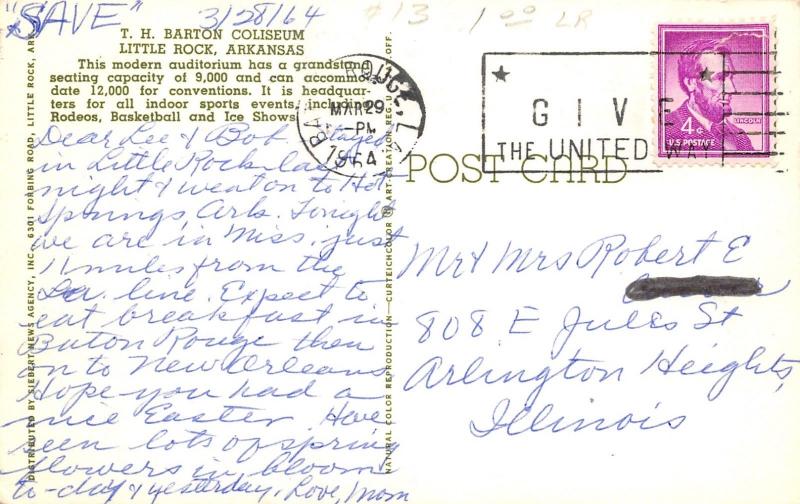 "SAVE" 3/28/64
#13 1 00 LR
T. H. BARTON COLISEUM
LITTLE ROCK, ARKANSAS
This modern auditorium has a grandstand
seating capacity of 9,000 and can accommo-
date 12,000 for conventions. It is headquar-
ters for all indoor sports events, including
Rodeos, Basketball and Ice Shows.
Dear Lee & Bob. Stayed
in Little Rock last
night & went on to Hot
Springs, Ark. Tonight
we are in Miss. just
11 miles from the
La. line. Expect to
eat breakfast in
Baton Rouge then
on to New Orleans
Hope you had a
nice Easter. Have
seen lots of spring
flowers in bloom
to-day & yesterday, Love, Mom
DISTRIBUTED BY SIEBERT NEWS AGENCY, INC., 6301 FORBING ROAD, LITTLE ROCK, ARK.
NATURAL COLOR REPRODUCTION—CURTEICHCOLOR ® ART-CREATION REG. U.S.A. PAT. OFF.
MAR 29
-PM
1964
GIVE
THE UNITED WAY
LINCOLN
4¢
U.S. POSTAGE
POST CARD
Mr & Mrs Robert E
808 E Jules St
Arlington Heights,
Illinois